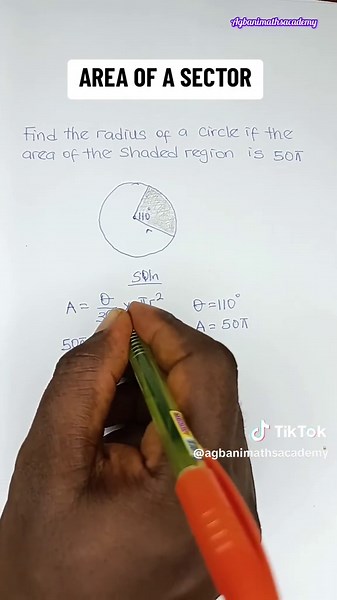 Agbanimathsacademy
AREA OF A SECTOR
Find the radius of a circle if the
area of the shaded region is 50π
110°
r
Soln
A = θ × πr²
θ = 110°
A = 50π
50π
TikTok
@agbanimathsacademy